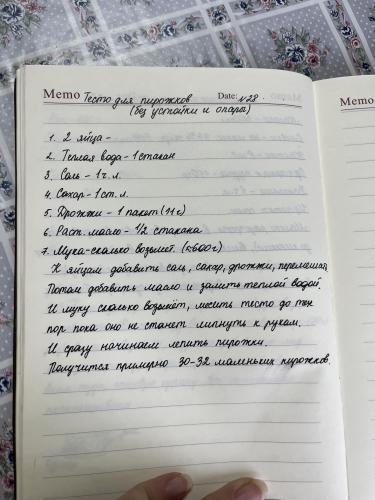 Memo Тесто для пирожков Date: №28
(без устойки и опары)
1. 2 яйца -
2. Теплая вода - 1 стакан
3. Соль - 1 ч.л.
4. Сахар - 1 ст.л.
5. Дрожжи - 1 пакет (11г)
6. Раст. масло - 1/2 стакана
7. Мука-сколько возьмет. (≈600г)
К яйцам добавить соль, сахар, дрожжи, перемешать,
Потом добавить масло и залить теплой водой.
И муку сколько возьмёт, месить тесто до тех
пор пока оно не станет липнуть к рукам.
И сразу начинаем лепить пирожки.
Получится примерно 30-32 маленьких пирожков.
Memo